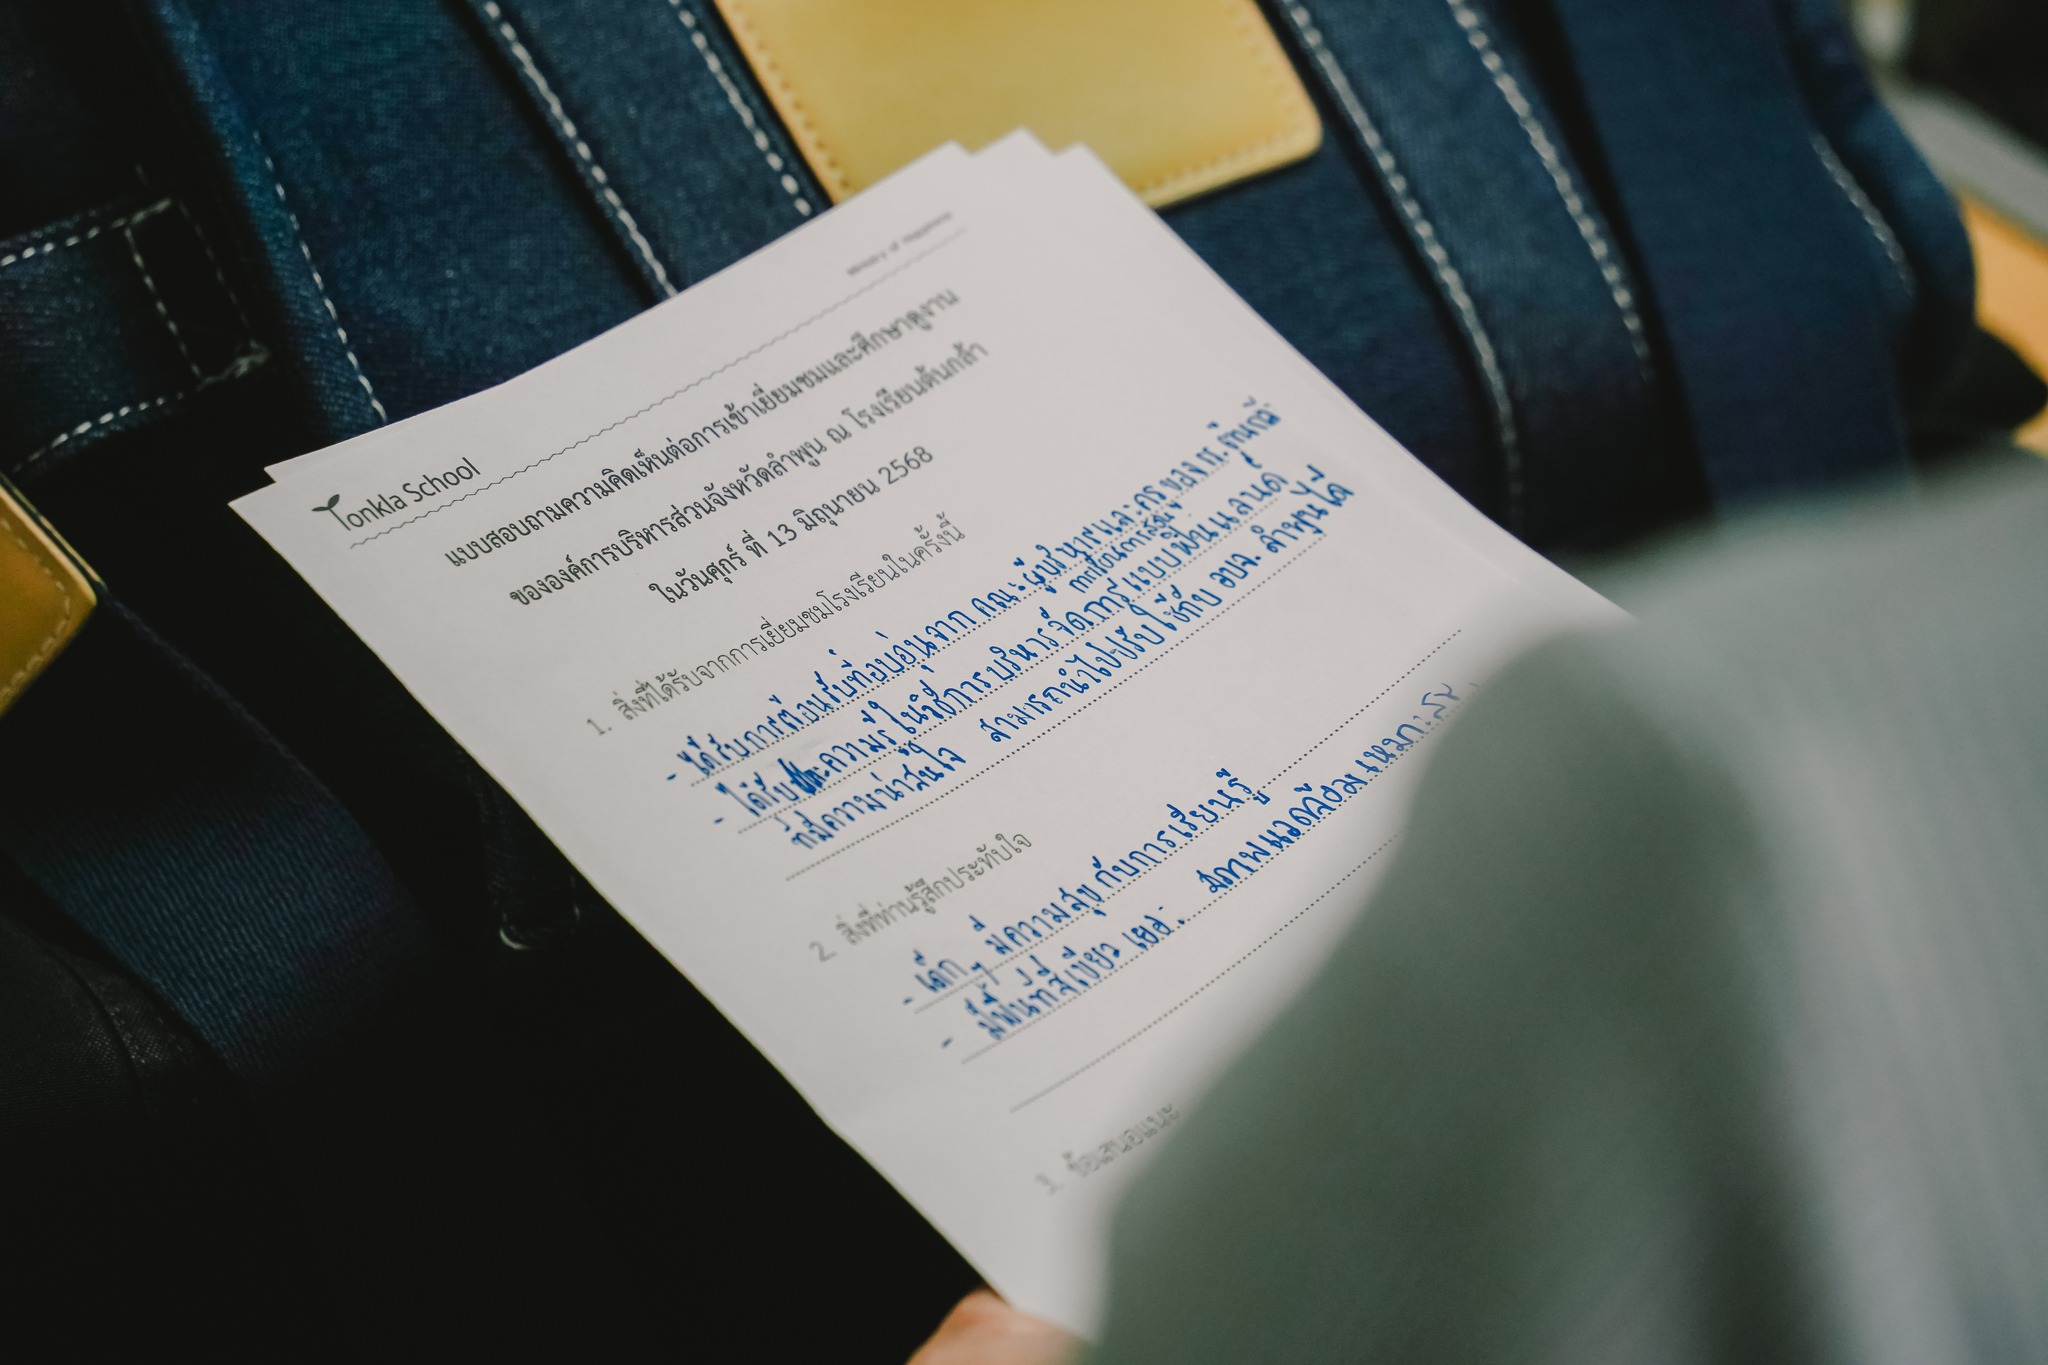 Tonkla School
แบบสอบถามความคิดเห็นต่อการเข้าเยี่ยมชมและศึกษาดูงาน
ขององค์การบริหารส่วนจังหวัดลำพูน ณ โรงเรียนต้นกล้า
ในวันศุกร์ ที่ 13 มิถุนายน 2568
1. สิ่งที่ได้รับจากการเยี่ยมชมโรงเรียนในครั้งนี้
- ได้รับการต้อนรับที่อบอุ่นจาก คณะผู้บริหารและครู ของ รร.ต้นกล้า
การเรียนการสอน
- ได้รับ ความรู้ในวิธีการบริหารจัดการ แบบฟินแลนด์
ที่มีความน่าสนใจ สามารถนำไปปรับใช้กับ อบจ. ลำพูนได้
2. สิ่งที่ท่านรู้สึกประทับใจ
- เด็ก ๆ มีความสุข กับการเรียนรู้
- มีพื้นที่สีเขียว เยอะ สภาพแวดล้อม เหมาะสม
3. ข้อเสนอแนะ